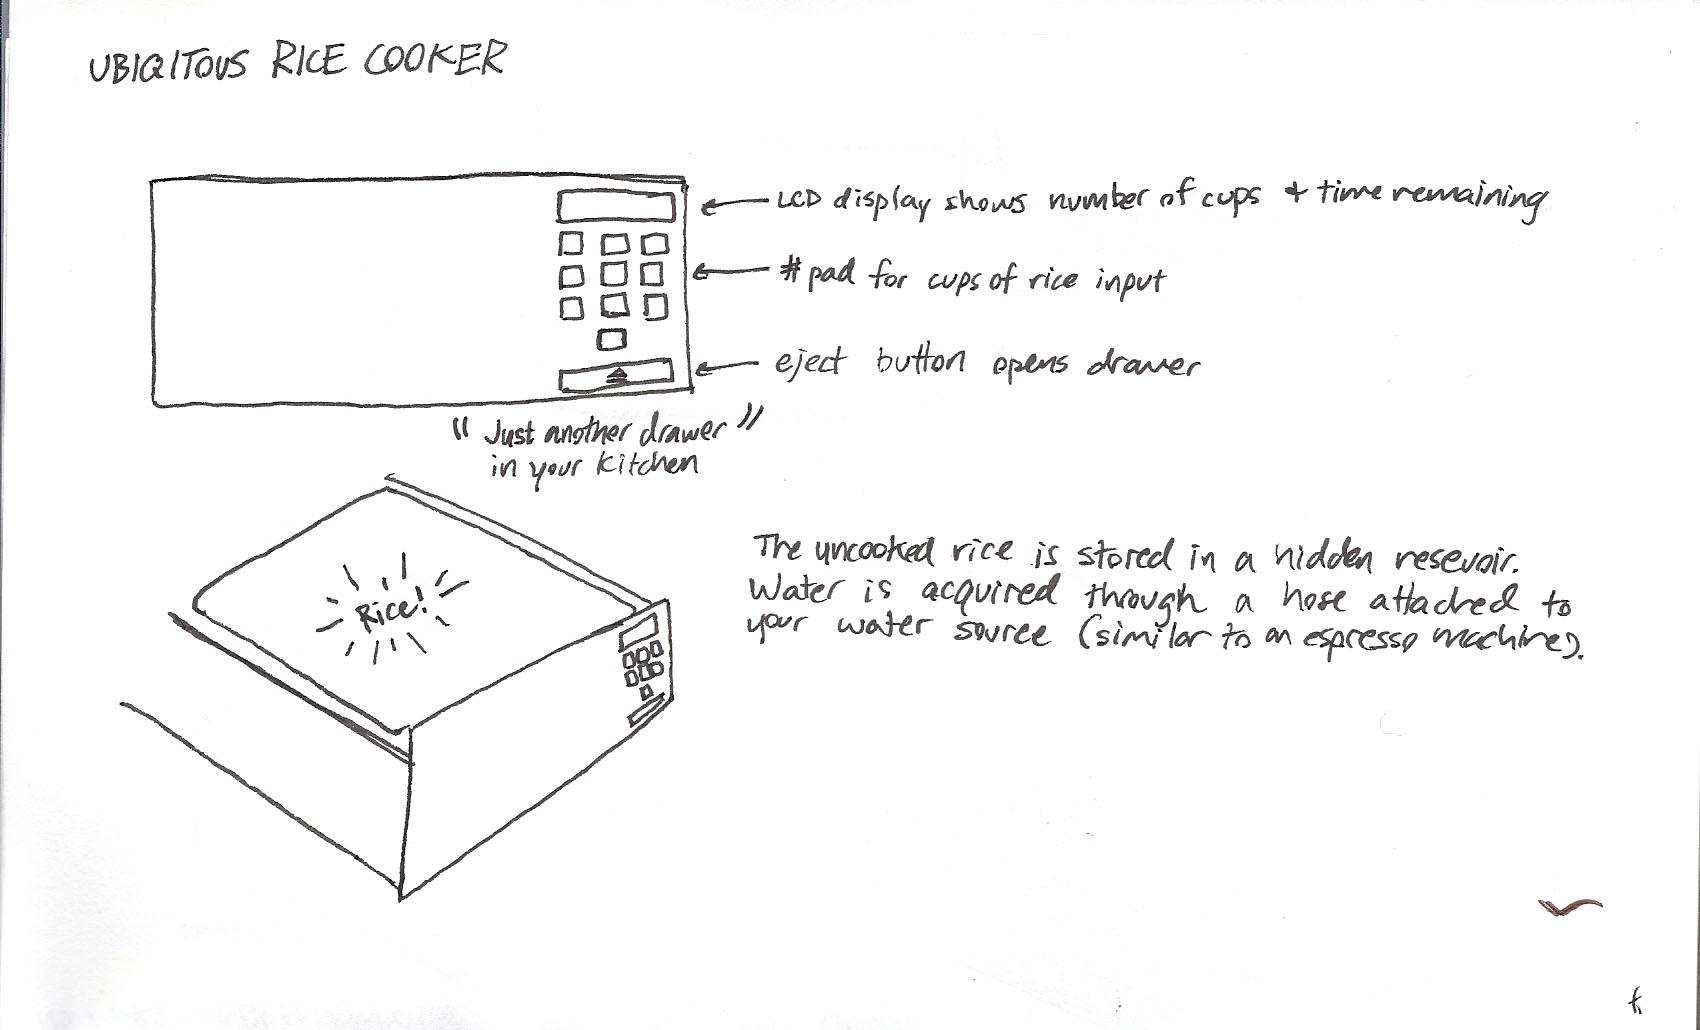 UBIQITOUS RICE COOKER
LCD display shows number of cups + time remaining
# pad for cups of rice input
eject button opens drawer
"Just another drawer"
in your kitchen
Rice!
The uncooked rice is stored in a hidden resevoir.
Water is acquired through a hose attached to
your water source (similar to an espresso machine).